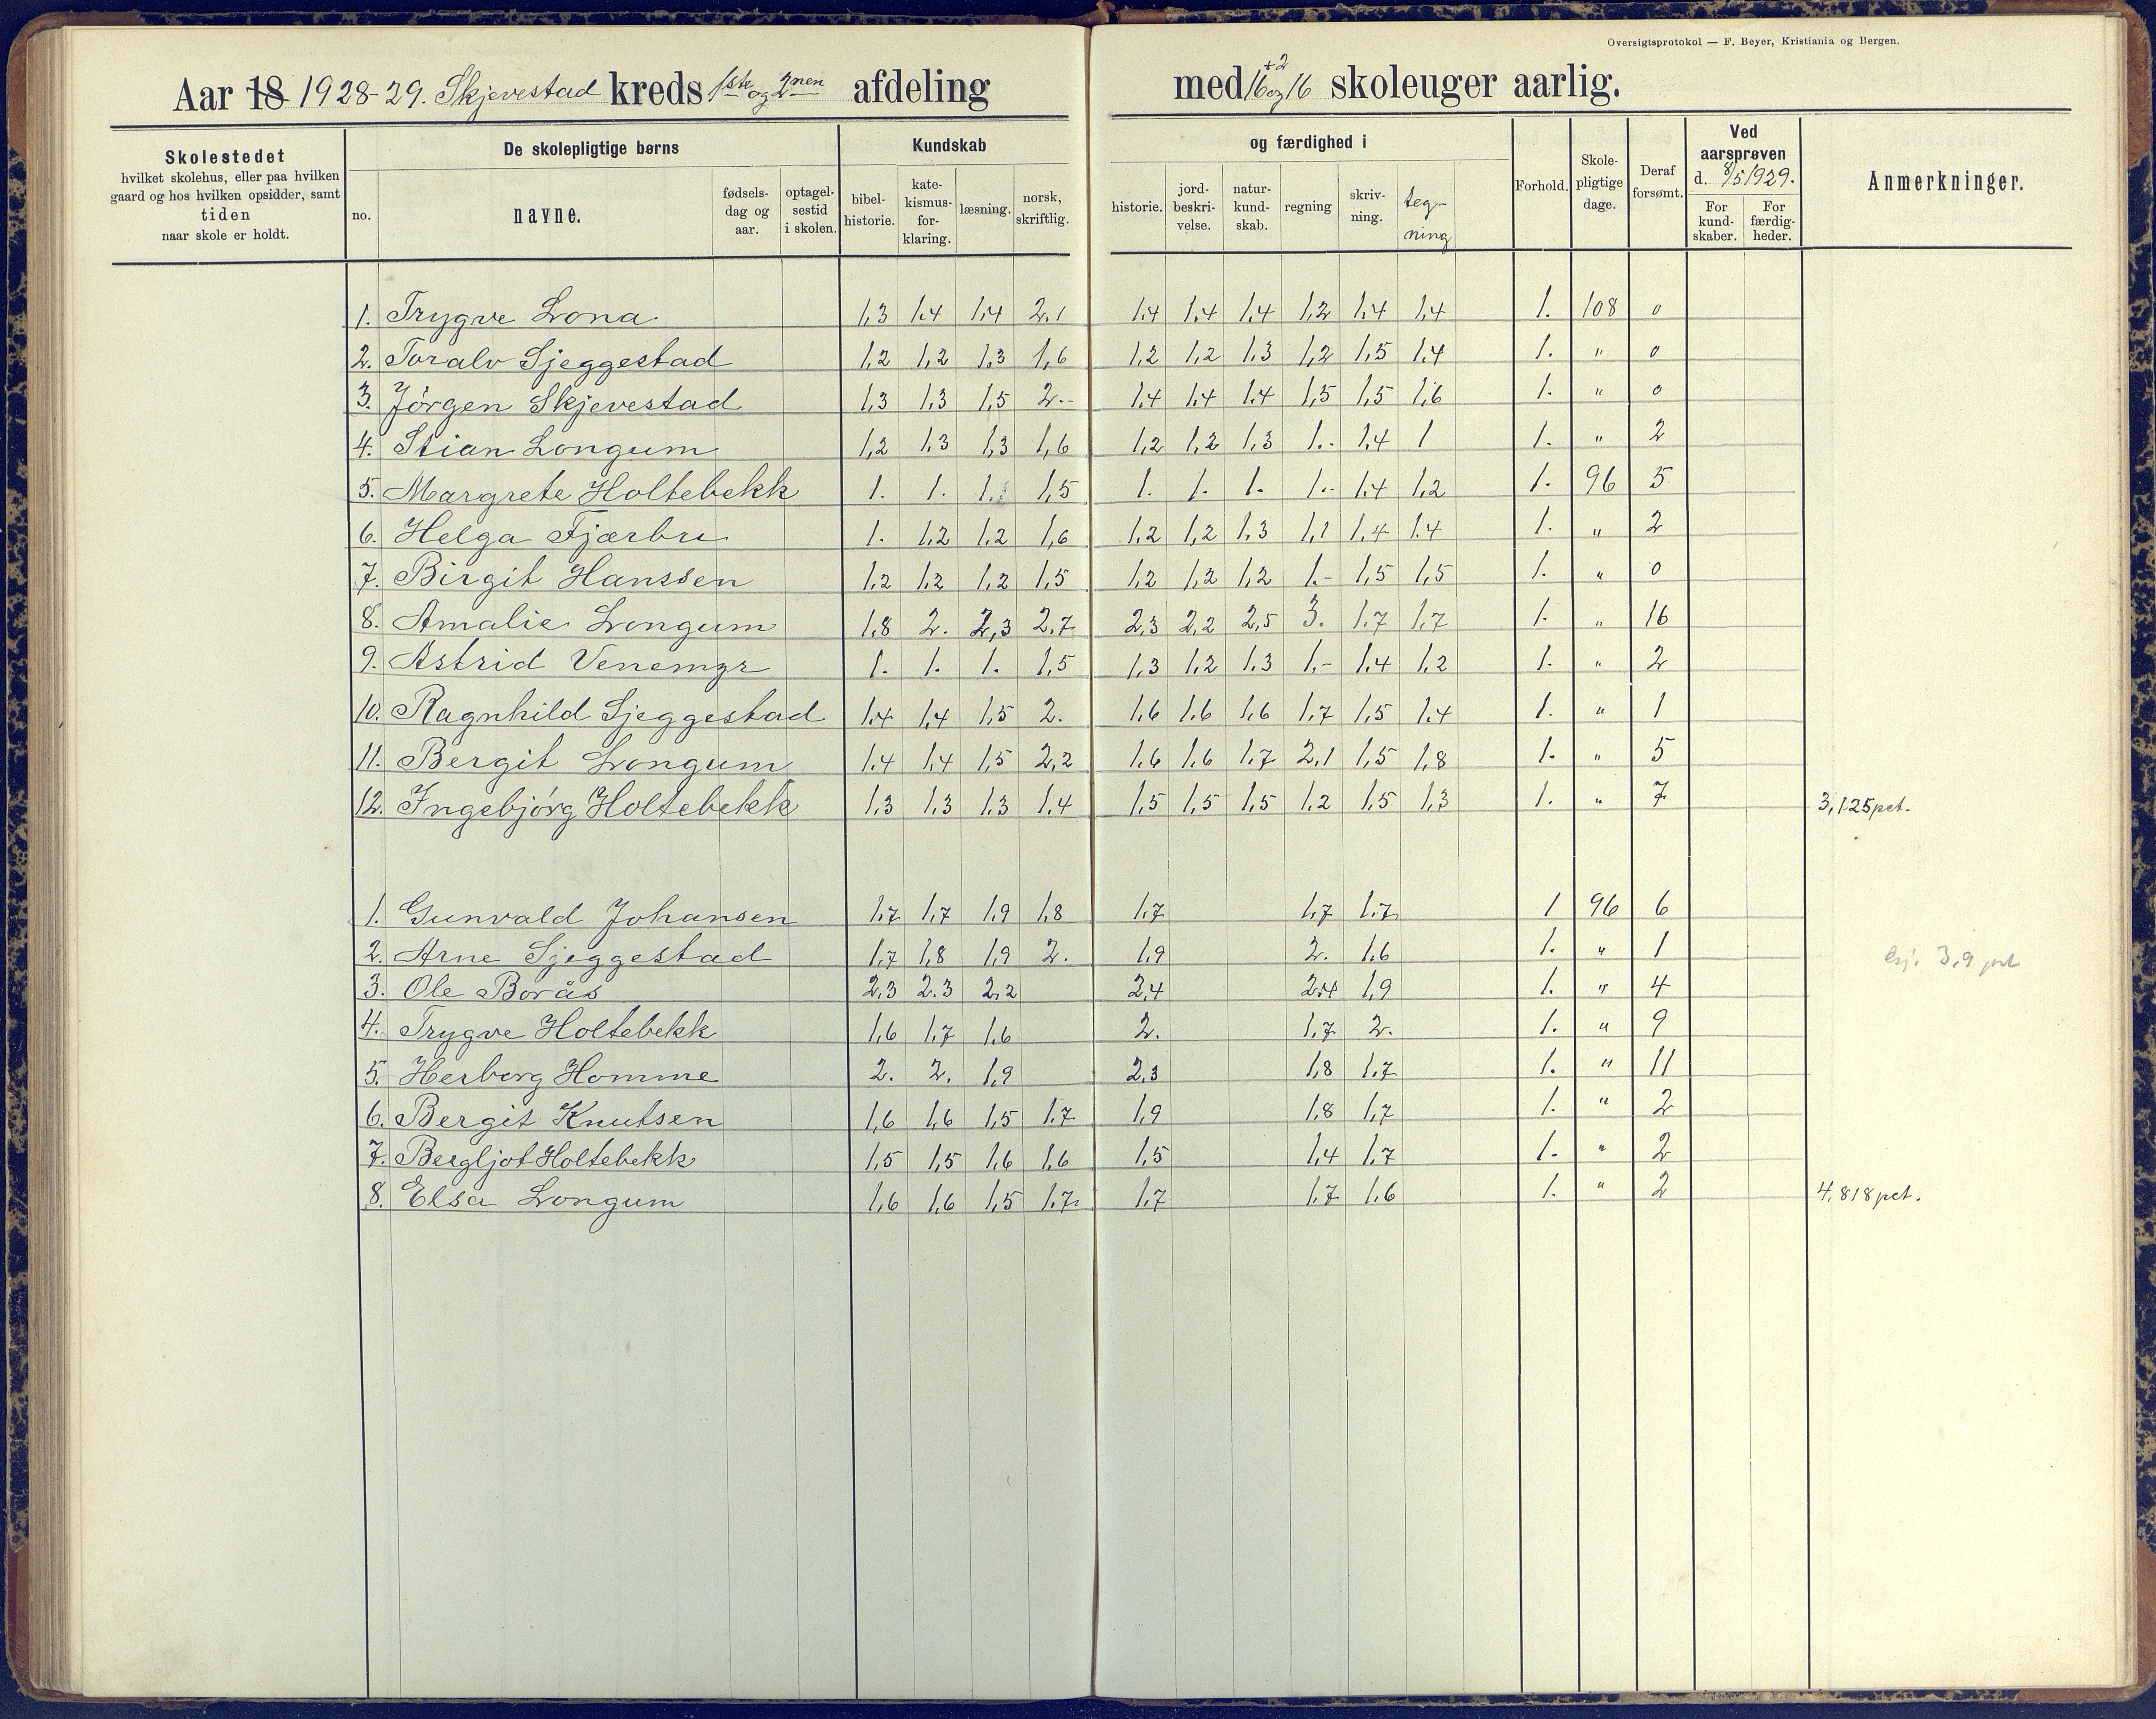 Oversigtsprotokol — F. Beyer, Kristiania og Bergen.
Aar 18 1928-29. Skjevestad kreds 1ste og 2nen afdeling med 16+2 og 16 skoleuger aarlig.
Skolestedet
hvilket skolehus, eller paa hvilken
gaard og hos hvilken opsidder, samt
tiden
naar skole er holdt.
De skolepligtige børns
no.
navne.
fødsels-
dag og
aar.
optagel-
sestid
i skolen.
Kundskab
bibel-
historie.
kate-
kismus-
for-
klaring.
læsning.
norsk,
skriftlig.
og færdighed i
historie.
jord-
beskri-
velse.
natur-
kund-
skab.
regning
skriv-
ning.
teg-
ning
Forhold.
Skole-
pligtige
dage.
Deraf
forsømt.
Ved
aarsprøven
d. 8/5 1929.
For
kund-
skaber.
For
færdig-
heder.
Anmerkninger.
1. Trygve Lona 1,3 1,4 1,4 2,1 1,4 1,4 1,4 1,2 1,4 1,4 1. 108 0
2. Toralv Sjeggestad 1,2 1,2 1,3 1,6 1,2 1,2 1,3 1,2 1,5 1,4 1. " 0
3. Jörgen Skjevestad 1,3 1,3 1,5 2.- 1,4 1,4 1,4 1,5 1,5 1,6 1. " 0
4. Stian Longum 1,2 1,3 1,3 1,6 1,2 1,2 1,3 1.- 1,4 1 1. " 2
5. Margrete Holtebekk 1. 1. 1. 1,5 1. 1. 1. 1.- 1,4 1,2 1. 96 5
6. Helga Fjærbu 1. 1,2 1,2 1,6 1,2 1,2 1,3 1,1 1,4 1,4 1. " 2
7. Birgit Hanssen 1,2 1,2 1,2 1,5 1,2 1,2 1,2 1.- 1,5 1,5 1. " 0
8. Amalie Longum 1,8 2. 2,3 2,7 2,3 2,2 2,5 3. 1,7 1,7 1. " 16
9. Astrid Venemyr 1. 1. 1. 1,5 1,3 1,2 1,3 1.- 1,4 1,2 1. " 2
10. Ragnhild Sjeggestad 1,4 1,4 1,5 2. 1,6 1,6 1,6 1,7 1,5 1,4 1. " 1
11. Bergit Longum 1,4 1,4 1,5 2,2 1,6 1,6 1,7 2,1 1,5 1,8 1. " 5
12. Ingebjörg Holtebekk 1,3 1,3 1,3 1,4 1,5 1,5 1,5 1,2 1,5 1,3 1. " 7 3,125 pct.
1. Gunvald Johansen 1,7 1,7 1,9 1,8 1,7 1,7 1,7 1 96 6
2. Arne Sjeggestad 1,7 1,8 1,9 2. 1,9 2. 1,6 1. " 1 3,9 pct
3. Ole Borås 2,3 2,3 2,2 2,4 2,4 1,9 1. " 4
4. Trygve Holtebekk 1,6 1,7 1,6 2. 1,7 2. 1. " 9
5. Herborg Homme 2. 2. 1,9 2,3 1,8 1,7 1. " 11
6. Bergit Knutsen 1,6 1,6 1,5 1,7 1,9 1,8 1,7 1. " 2
7. Bergljot Holtebekk 1,5 1,5 1,6 1,6 1,5 1,4 1,7 1. " 2
8. Elsa Longum 1,6 1,6 1,5 1,7 1,7 1,7 1,6 1. " 2 4,818 pct.